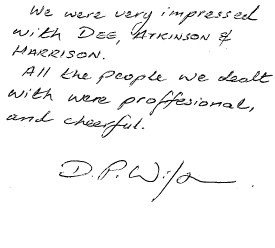 We were very impressed
with DEE, ATKINSON &
HARRISON.
All the people we dealt
with were proffesional,
and cheerful.
D.P. Wilson